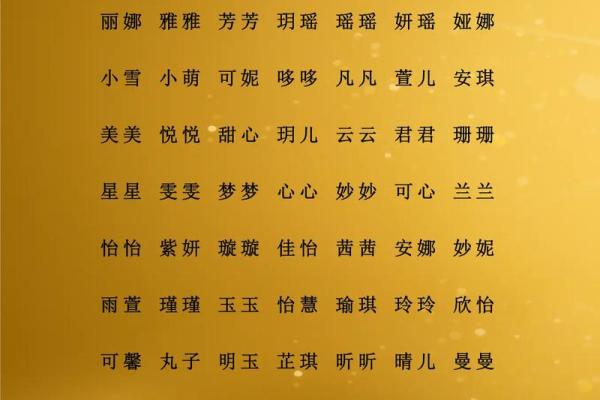 丽娜 雅雅 芳芳 玥瑶 瑶瑶 妍瑶 娅娜
小雪 小萌 可妮 哆哆 凡凡 萱儿 安琪
美美 悦悦 甜心 玥儿 云云 君君 珊珊
星星 雯雯 梦梦 心心 妙妙 可心 兰兰
怡怡 紫妍 璇璇 佳怡 茜茜 安娜 妙妮
雨萱 瑾瑾 玉玉 怡慧 瑜琪 玲玲 欣怡
可馨 丸子 明玉 芷琪 昕昕 晴儿 曼曼